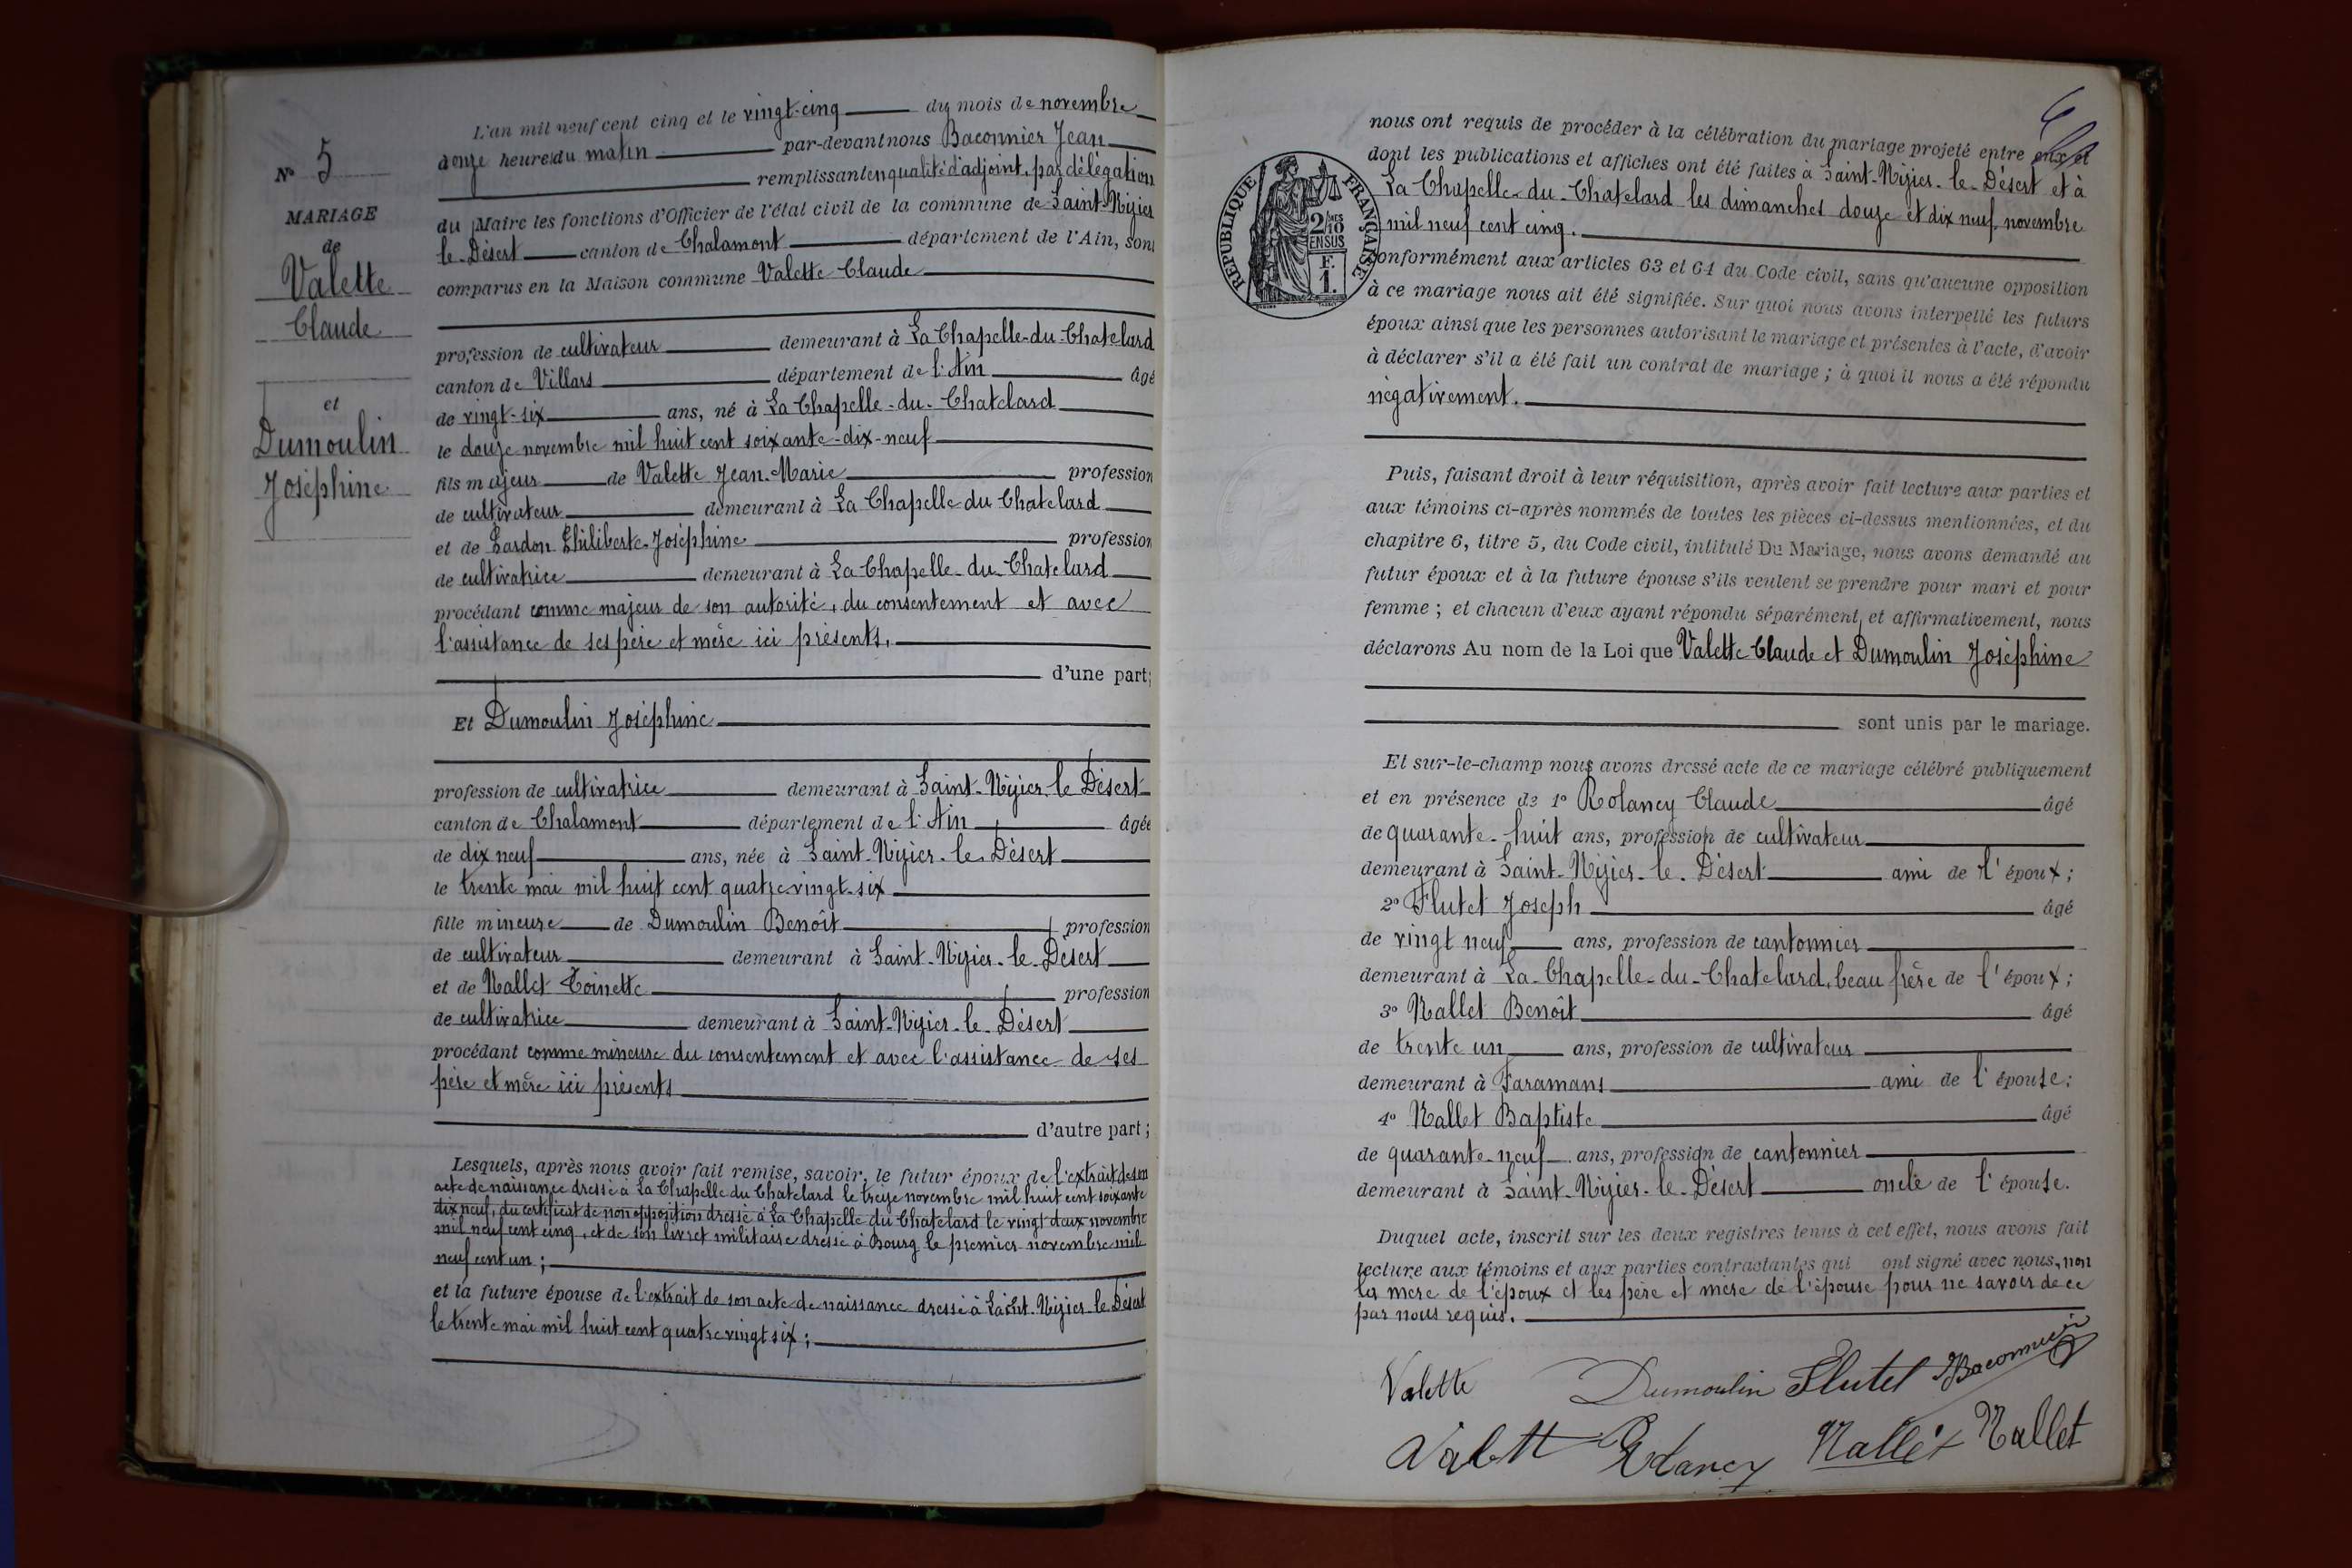 N° 5
MARIAGE
de
Valette
Claude
et
Dumoulin
Joséphine
L'an mil neuf cent cinq et le vingt-cinq du mois de novembre
heures du matin par-devant nous Baconnier Jean
remplissant en qualité d'adjoint, par délégation
du Maire les fonctions d'Officier de l'état civil de la commune de Saint-Nizier
le-Désert canton de Chalamont département de l'Ain, sont
comparus en la Maison commune Valette Claude
profession de cultivateur demeurant à La Chapelle-du-Chatelard
canton de Villars département de l'Ain âgé
de vingt-six ans, né à La Chapelle-du-Chatelard
le douze novembre mil huit cent soixante-dix-neuf
fils majeur de Valette Jean-Marie profession
de cultivateur demeurant à La Chapelle du Chatelard
et de Lardon Philiberte-Joséphine profession
de cultivatrice demeurant à La Chapelle-du-Chatelard
procédant comme majeur de son autorité, du consentement et avec
l'assistance de ses père et mère ici présents,
d'une part;
Et Dumoulin Joséphine
profession de cultivatrice demeurant à Saint-Nizier-le-Désert
canton de Chalamont département de l'Ain âgée
de dix neuf ans, née à Saint-Nizier-le-Désert
le trente mai mil huit cent quatre-vingt-six
fille mineure de Dumoulin Benoît profession
de cultivateur demeurant à Saint-Nizier-le-Désert
et de Nallet Toinette profession
de cultivatrice demeurant à Saint-Nizier-le-Désert
procédant comme mineure du consentement et avec l'assistance de ses
père et mère ici présents
d'autre part;
Lesquels, après nous avoir fait remise, savoir, le futur époux de l'extrait de son
acte de naissance dressé à La Chapelle du Chatelard le treize novembre mil huit cent soixante
dix neuf, du certificat de non opposition dressé à La Chapelle du Chatelard le vingt deux novembre
mil neuf cent cinq, et de son livret militaire dressé à Bourg le premier novembre mil
neuf cent un;
et la future épouse de l'extrait de son acte de naissance dressé à Saint-Nizier-le-Désert
le trente mai mil huit cent quatre vingt six;
nous ont requis de procéder à la célébration du mariage projeté entre eux et
dont les publications et affiches ont été faites à Saint-Nizier-le-Désert et à
La Chapelle-du-Chatelard les dimanches douze et dix neuf novembre
mil neuf cent cinq.
REPUBLIQUE FRANÇAISE
2/10 EN SUS
F. 1.
conformément aux articles 63 et 64 du Code civil, sans qu'aucune opposition
à ce mariage nous ait été signifiée. Sur quoi nous avons interpellé les futurs
époux ainsi que les personnes autorisant le mariage et présentes à l'acte, d'avoir
à déclarer s'il a été fait un contrat de mariage; à quoi il nous a été répondu
négativement.
Puis, faisant droit à leur réquisition, après avoir fait lecture aux parties et
aux témoins ci-après nommés de toutes les pièces ci-dessus mentionnées, et du
chapitre 6, titre 5, du Code civil, intitulé Du Mariage, nous avons demandé au
futur époux et à la future épouse s'ils veulent se prendre pour mari et pour
femme; et chacun d'eux ayant répondu séparément et affirmativement, nous
déclarons Au nom de la Loi que Valette Claude et Dumoulin Joséphine
sont unis par le mariage.
Et sur-le-champ nous avons dressé acte de ce mariage célébré publiquement
et en présence de 1° Rolancy Claude âgé
de quarante-huit ans, profession de cultivateur
demeurant à Saint-Nizier-le-Désert ami de l'époux;
2° Flutet Joseph âgé
de vingt neuf ans, profession de cantonnier
demeurant à La-Chapelle-du-Chatelard, beau frère de l'époux;
3° Nallet Benoît âgé
de trente un ans, profession de cultivateur
demeurant à Faramans ami de l'épouse;
4° Nallet Baptiste âgé
de quarante-neuf ans, profession de cantonnier
demeurant à Saint-Nizier-le-Désert oncle de l'épouse.
Duquel acte, inscrit sur les deux registres tenus à cet effet, nous avons fait
lecture aux témoins et aux parties contractantes qui ont signé avec nous, non
les mère de l'époux et les père et mère de l'épouse pour ne savoir de ce
par nous requis.
Valette Dumoulin Flutet JBaconnier
Valett Rolancy Nallet Nallet